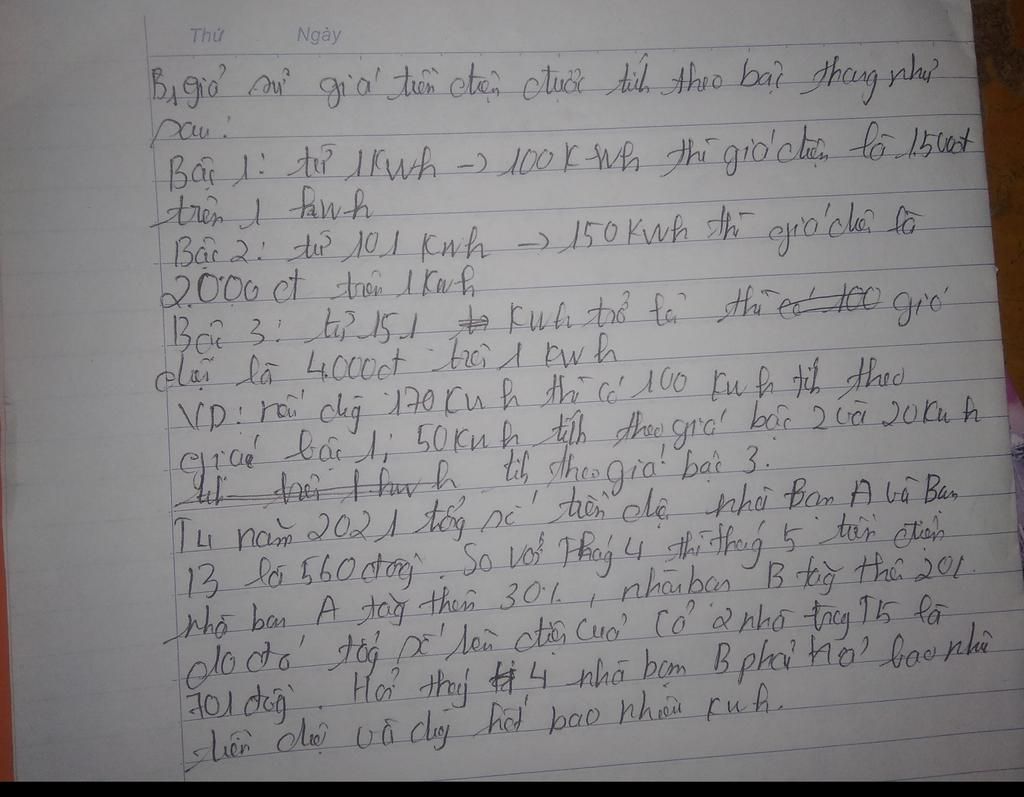 Thứ Ngày
B1 giả sử giá tiền điện được tính theo bậc thang như
sau:
Bậc 1: từ 1KWh → 100KWh thì giá điện là 1.500đ
trên 1 kwh
Bậc 2: từ 101 KWh → 150KWh thì giá điện là
2.000 đ trên 1KWh
Bậc 3: từ 151 KWh trở lên thì có 100 giá
điện là 4.000đ trên 1 kwh
VD: nếu dùng 170KWh thì có 100 KWh tính theo
giá bậc 1; 50KWh tính theo giá bậc 2 và 20KWh
tính trên 1 kwh tính theo giá bậc 3.
T4 năm 2021 tổng số tiền điện nhà Bạn A và Bạn
B là 560 đồng. So với Tháng 4 thì tháng 5 tiền điện
nhà bạn A tăng thêm 30%, nhà bạn B tăng thêm 20%
do đó tổng số tiền điện của cả 2 nhà trong T5 là
701 đồng. Hỏi tháng 4 nhà bạn B phải trả bao nhiêu
tiền điện và dùng hết bao nhiêu kwh.